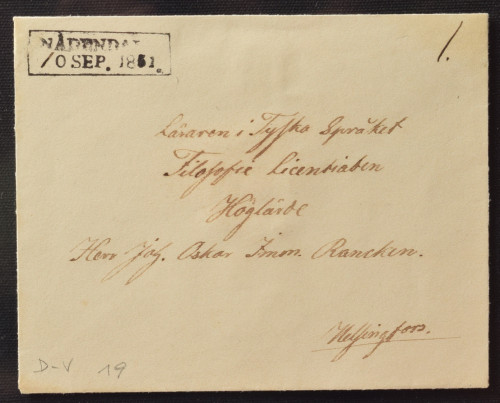 NÅDENDAL
10 SEP. 1851.
1.
Läraren i Tyska Språket
Filosofie Licentiaten
Höglärde
Herr Joh. Oskar Imon. Rancken.
Helsingfors.
D-V 19